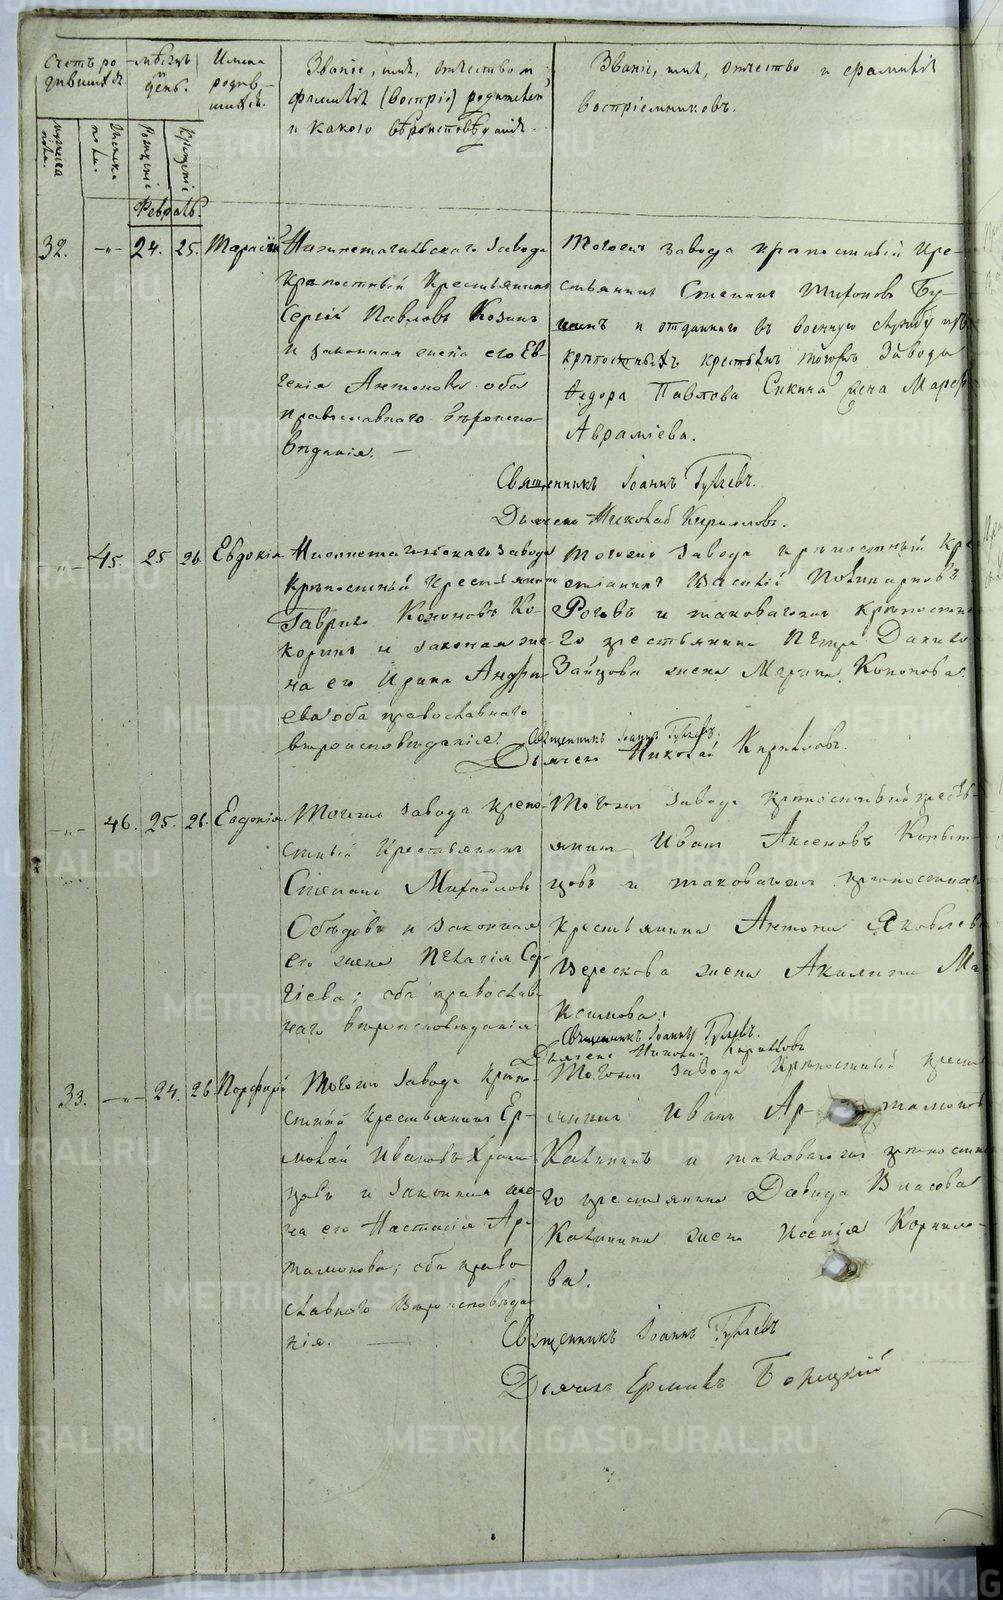 Счетъ ро
дившихся.
Мѣсяцъ и
день.
Имена
родив-
шихся.
Званіе, имя, отчество и
фамилія родителей
и какого вѣроисповѣданія.
Званіе, имя, отчество и фамилія
воспріемниковъ.
мужеска
пола.
женска
пола.
рожденіе
крещеніе
Февраль.
32. -"- 24. 25. Тарасій
Нижнетагильскаго завода
крѣпостный крестьянинъ
Сергій Павловъ Козинъ
и законная жена его Ев-
генія Антонова оба
православнаго вѣроиспо-
вѣданія. —
Тогожъ завода крѣпостный кре-
стьянинъ Степанъ Тихоновъ Бу-
и отданнаго въ военную службу изъ
крѣпостныхъ крестьянъ тогожъ завода
Федора Павлова Сикина жена Марѳа
Аврамієва.
Священникъ Іоаннъ Гуляевъ.
Дьячекъ Николай Кирилловъ.
-"- 45. 25 26. Евдокія
Нижнетагильскаго завода
крѣпостный крестьянинъ
Гаврило Кононовъ Ко-
и законная же-
на его Ирина Андре-
ева оба православнаго
вѣроисповѣданія.
Тогожъ завода крѣпостный кре-
стьянинъ Василій
Роговъ и таковагожъ крѣпостна-
го крестьянина Петра Данило
Зайцова жена Марина Кононова.
Священникъ Іоаннъ Гуляевъ.
Дьячекъ Николай Кирилловъ.
-"- 46. 25. 26. Евдокія
Тогожъ завода крѣпо-
стный крестьянинъ
Степанъ Михайловъ
Обѣдовъ и законная
его жена Пелагія Сер-
гіева; оба православ-
наго вѣроисповѣданія
Тогожъ завода крѣпостный кресть-
янинъ Иванъ Аксеновъ Копыт-
цовъ и таковагожъ крѣпостнаго
крестьянина Антона Яковлева
Верескова жена Акилина Ма-
ксимова.
Священникъ Іоаннъ Гуляевъ.
Дьячекъ Николай Кирилловъ
33. -"- 24. 26. Порфирій
Тогожъ завода крѣпо-
стный крестьянинъ Ер-
молай Ивановъ Храм-
цовъ и законная же-
на его Настасія Ар-
тамонова; оба право
славнаго вѣроисповѣда
нія. —
Тогожъ завода крѣпостный кресть
янинъ Иванъ Ар- тамоновъ
Калининъ и таковагожъ крѣпостна
го крестьянина Давида Власова
Калинина жена Ксенія Корнило-
ва.
Священникъ Іоаннъ Гуляевъ
Дьячекъ Ермилъ Борицкій
METRIKI.GASO-URAL.RU